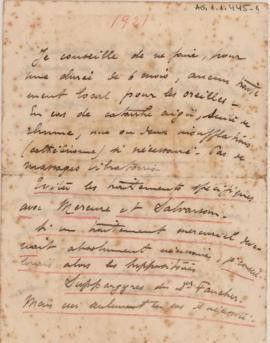 1921
AG.1.1.445-1
Je conseille de ne faire, pour
une durée de 6 mois, aucun traite
ment local pour les oreilles -
En cas de catarrhe aigu, suite de
rhume, une ou deux insufflations
(cathétérisme) si nécessaire. Pas de
massages vibratoires
Eviter les traitements spécifiques
avec Mercure et Salvarsan.
Si un traitement mercuriel deve
nait absolument nécessaire,
alors les suppositoires
Suppargyres du Dr Faucher.
Mais seulement en cas